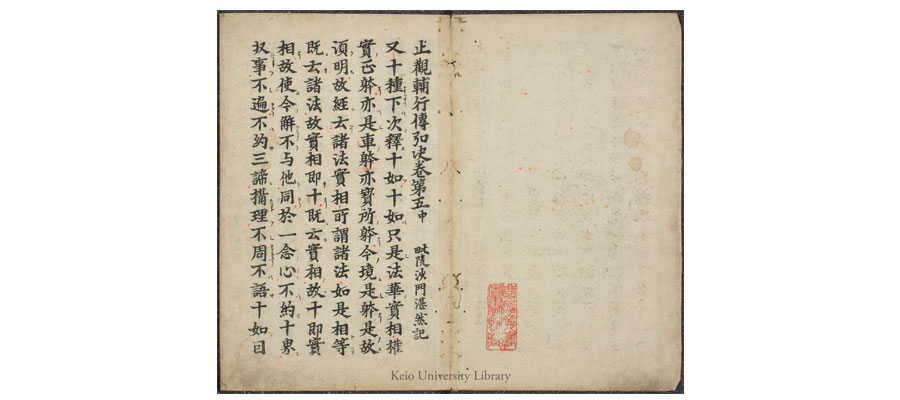 止觀輔行傳弘决卷第五中　毗陵沙門湛然記
又十種下次釋十如十如只是法華實相權
實正躰亦是車躰亦寳所躰今境是躰是故
湏明故經云諸法實相所謂諸法如是相等
既云諸法故實相即十既云實相故十即實
相故使今解不与他同於一念心不約十界
収事不遍不約三諦攝理不周不語十如因
Keio University Library